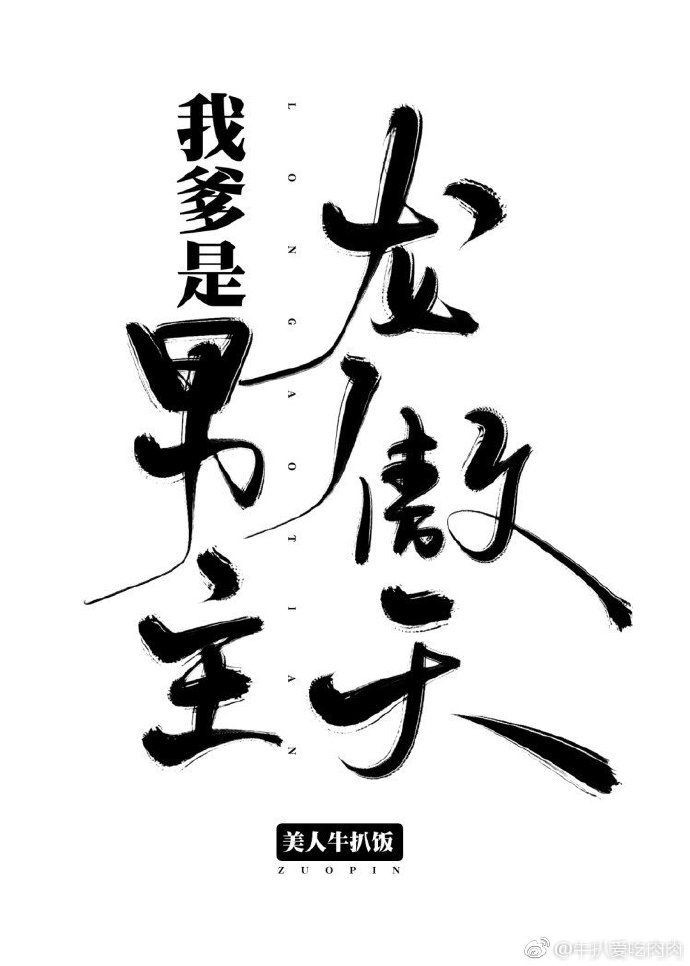 我爹是男主
龙傲天
LONGAOTIAN
美人牛扒饭
ZUOPIN
@牛扒爱吃肉肉